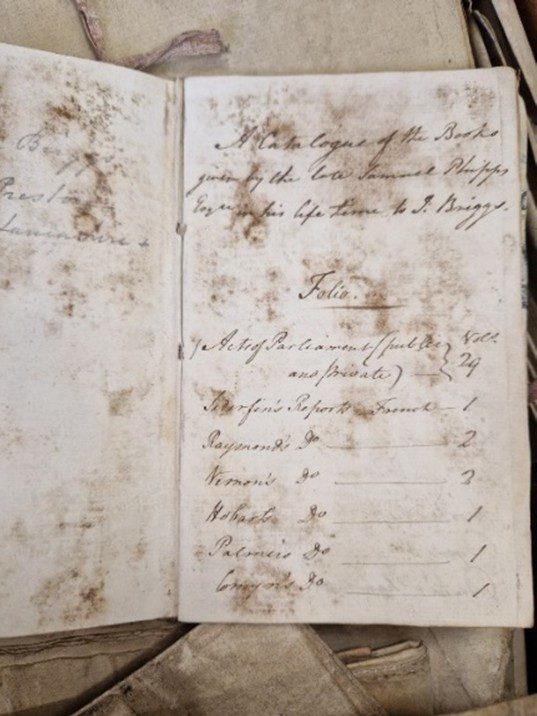 Briggs
Preston
Lancashire
A Catalogue of the Books
given by the late Samuel Phipps
Esqre in his life time to J. Briggs.
Folio.
Acts of Parliament (public Vols.
and private) — 29
Siderfin's Reports French — 1
Raymond's Do — 2
Vernon's Do — 2
Hobart's Do — 1
Palmer's Do — 1
Comyn's Do — 1